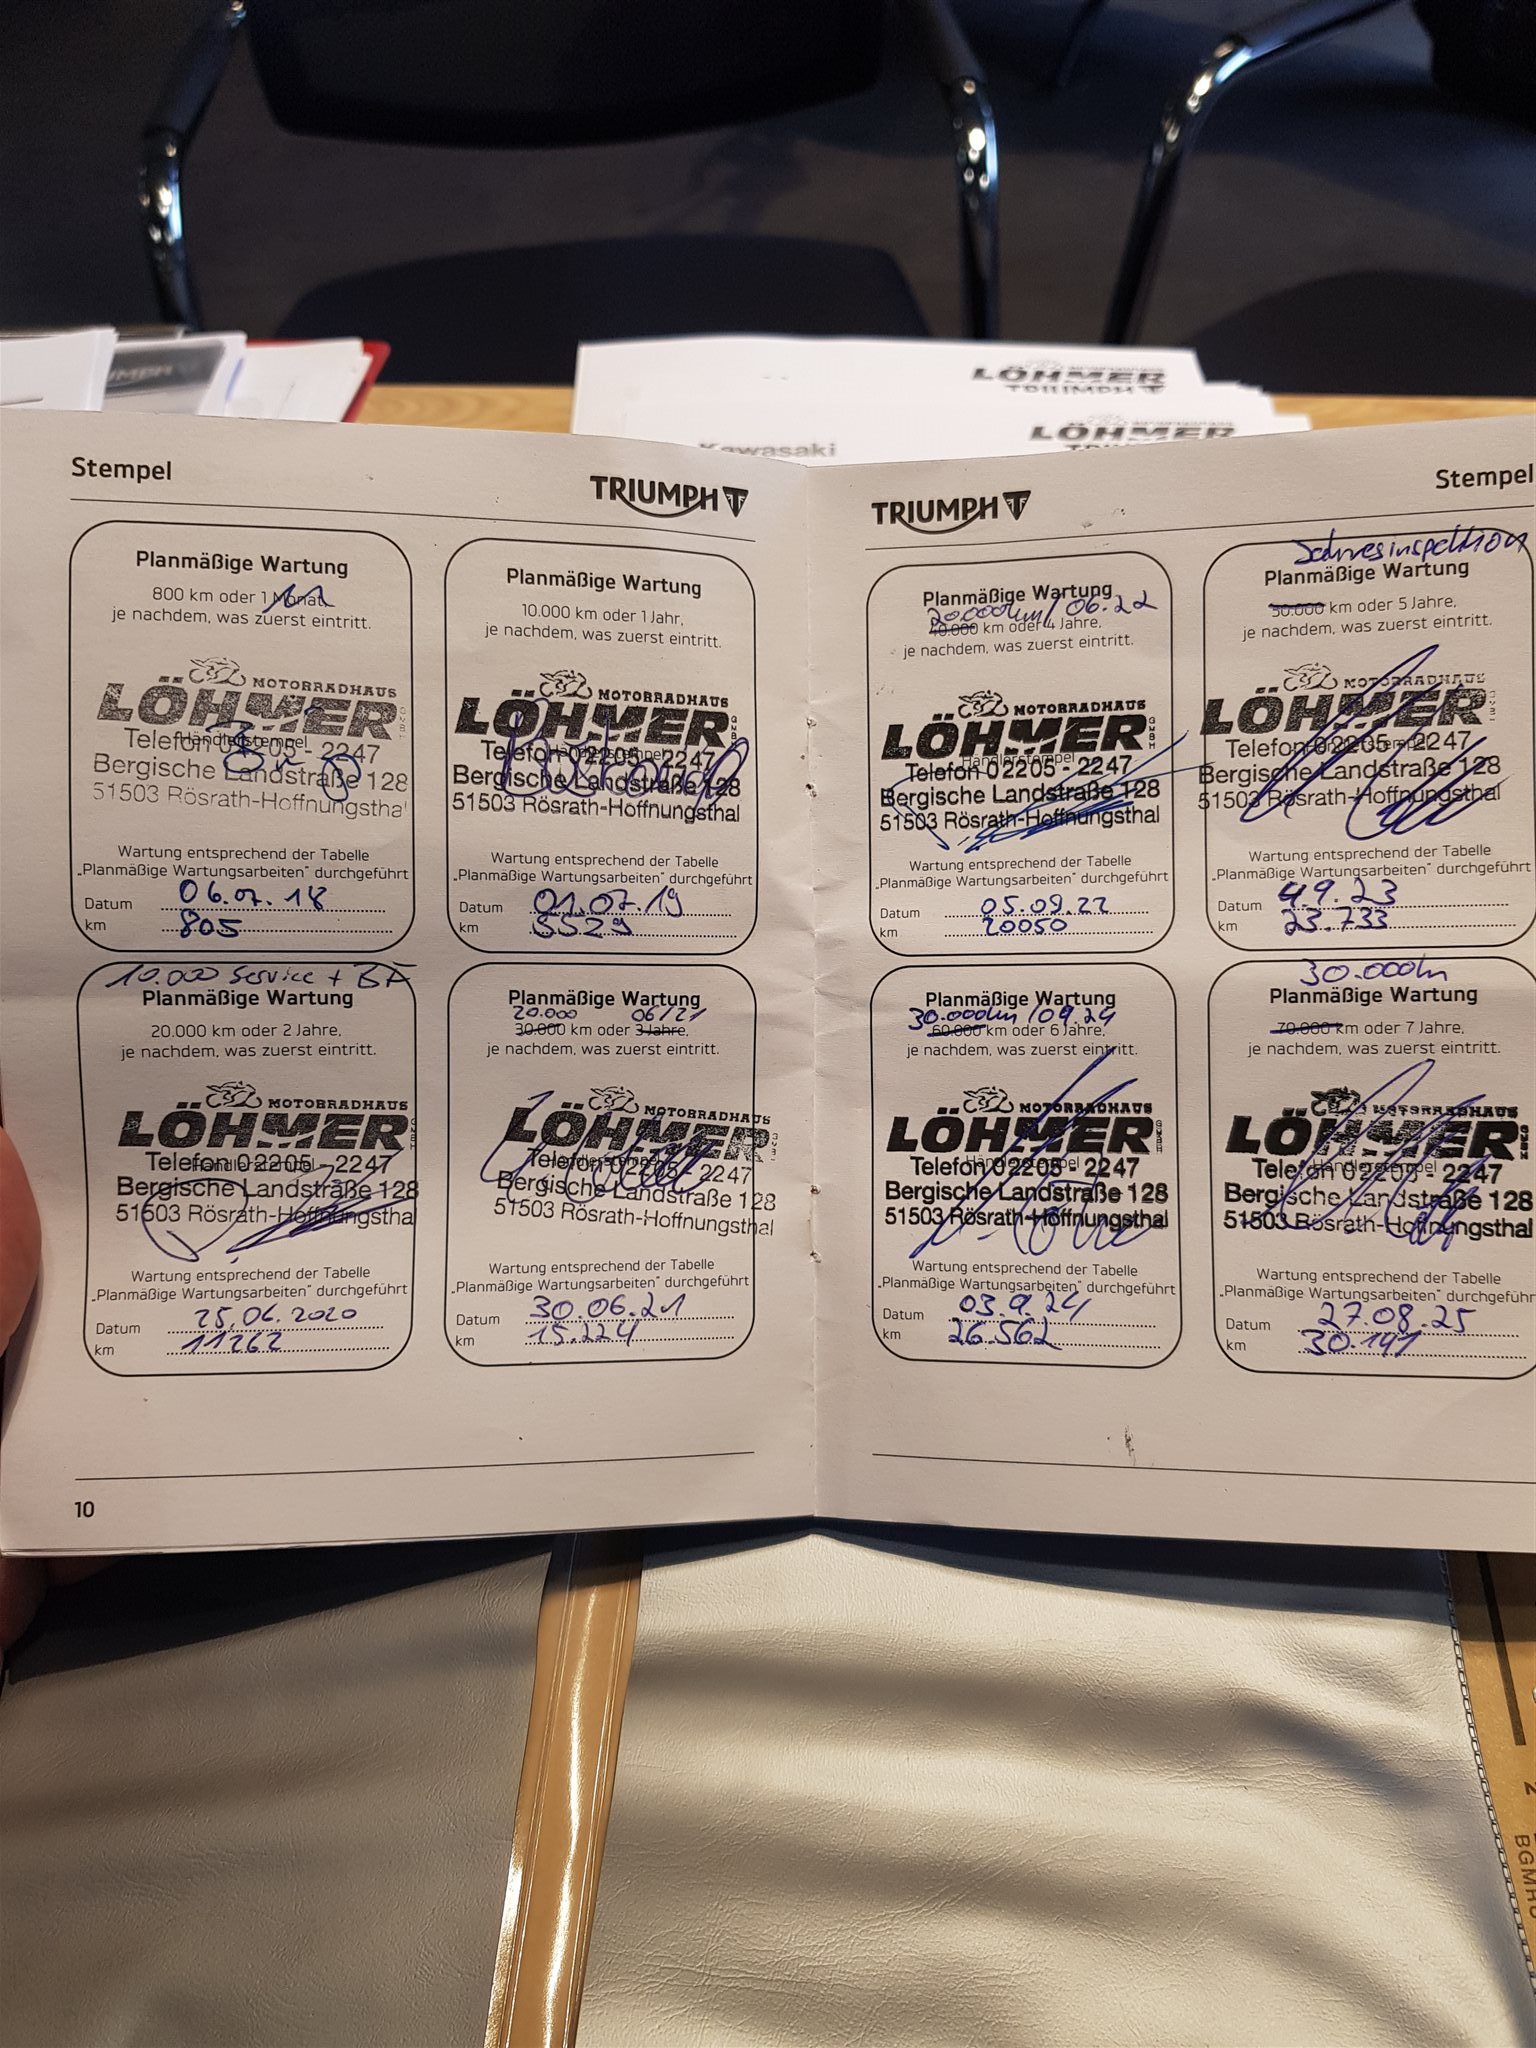 LÖHMER
TRIUMPH
LÖHMER
Kawasaki
Stempel
TRIUMPH
Planmäßige Wartung
800 km oder 1 Monat,
je nachdem, was zuerst eintritt.
MOTORRADHAUS
LÖHMER GMBH
Händlerstempel
Telefon 02205 - 2247
Bergische Landstraße 128
51503 Rösrath-Hoffnungsthal
Wartung entsprechend der Tabelle
„Planmäßige Wartungsarbeiten“ durchgeführt
Datum 06.07.18
km 805
Planmäßige Wartung
10.000 km oder 1 Jahr,
je nachdem, was zuerst eintritt.
MOTORRADHAUS
LÖHMER GMBH
Händlerstempel
Telefon 02205 - 2247
Bergische Landstraße 128
51503 Rösrath-Hoffnungsthal
Wartung entsprechend der Tabelle
„Planmäßige Wartungsarbeiten“ durchgeführt
Datum 01.07.19
km 8529
10.000 Service + BF
Planmäßige Wartung
20.000 km oder 2 Jahre,
je nachdem, was zuerst eintritt.
MOTORRADHAUS
LÖHMER GMBH
Händlerstempel
Telefon 02205 - 2247
Bergische Landstraße 128
51503 Rösrath-Hoffnungsthal
Wartung entsprechend der Tabelle
„Planmäßige Wartungsarbeiten“ durchgeführt
Datum 25.06.2020
km 11262
Planmäßige Wartung
20.000 06/21
30.000 km oder 3 Jahre,
je nachdem, was zuerst eintritt.
MOTORRADHAUS
LÖHMER GMBH
Händlerstempel
Telefon 02205 - 2247
Bergische Landstraße 128
51503 Rösrath-Hoffnungsthal
Wartung entsprechend der Tabelle
„Planmäßige Wartungsarbeiten“ durchgeführt
Datum 30.06.21
km 15.224
10
TRIUMPH
Stempel
Planmäßige Wartung
20.000km/06.22
40.000 km oder 4 Jahre,
je nachdem, was zuerst eintritt.
MOTORRADHAUS
LÖHMER GMBH
Händlerstempel
Telefon 02205 - 2247
Bergische Landstraße 128
51503 Rösrath-Hoffnungsthal
Wartung entsprechend der Tabelle
„Planmäßige Wartungsarbeiten“ durchgeführt
Datum 05.09.22
km 20050
Jahresinspektion
Planmäßige Wartung
50.000 km oder 5 Jahre,
je nachdem, was zuerst eintritt.
MOTORRADHAUS
LÖHMER GMBH
Händlerstempel
Telefon 02205 - 2247
Bergische Landstraße 128
51503 Rösrath-Hoffnungsthal
Wartung entsprechend der Tabelle
„Planmäßige Wartungsarbeiten“ durchgeführt
Datum 4.9.23
km 23.733
Planmäßige Wartung
30.000km/09.24
60.000 km oder 6 Jahre,
je nachdem, was zuerst eintritt.
MOTORRADHAUS
LÖHMER GMBH
Händlerstempel
Telefon 02205 - 2247
Bergische Landstraße 128
51503 Rösrath-Hoffnungsthal
Wartung entsprechend der Tabelle
„Planmäßige Wartungsarbeiten“ durchgeführt
Datum 03.9.24
km 26.562
30.000km
Planmäßige Wartung
70.000 km oder 7 Jahre,
je nachdem, was zuerst eintritt.
MOTORRADHAUS
LÖHMER GMBH
Händlerstempel
Telefon 02205 - 2247
Bergische Landstraße 128
51503 Rösrath-Hoffnungsthal
Wartung entsprechend der Tabelle
„Planmäßige Wartungsarbeiten“ durchgeführt
Datum 27.08.25
km 30.141